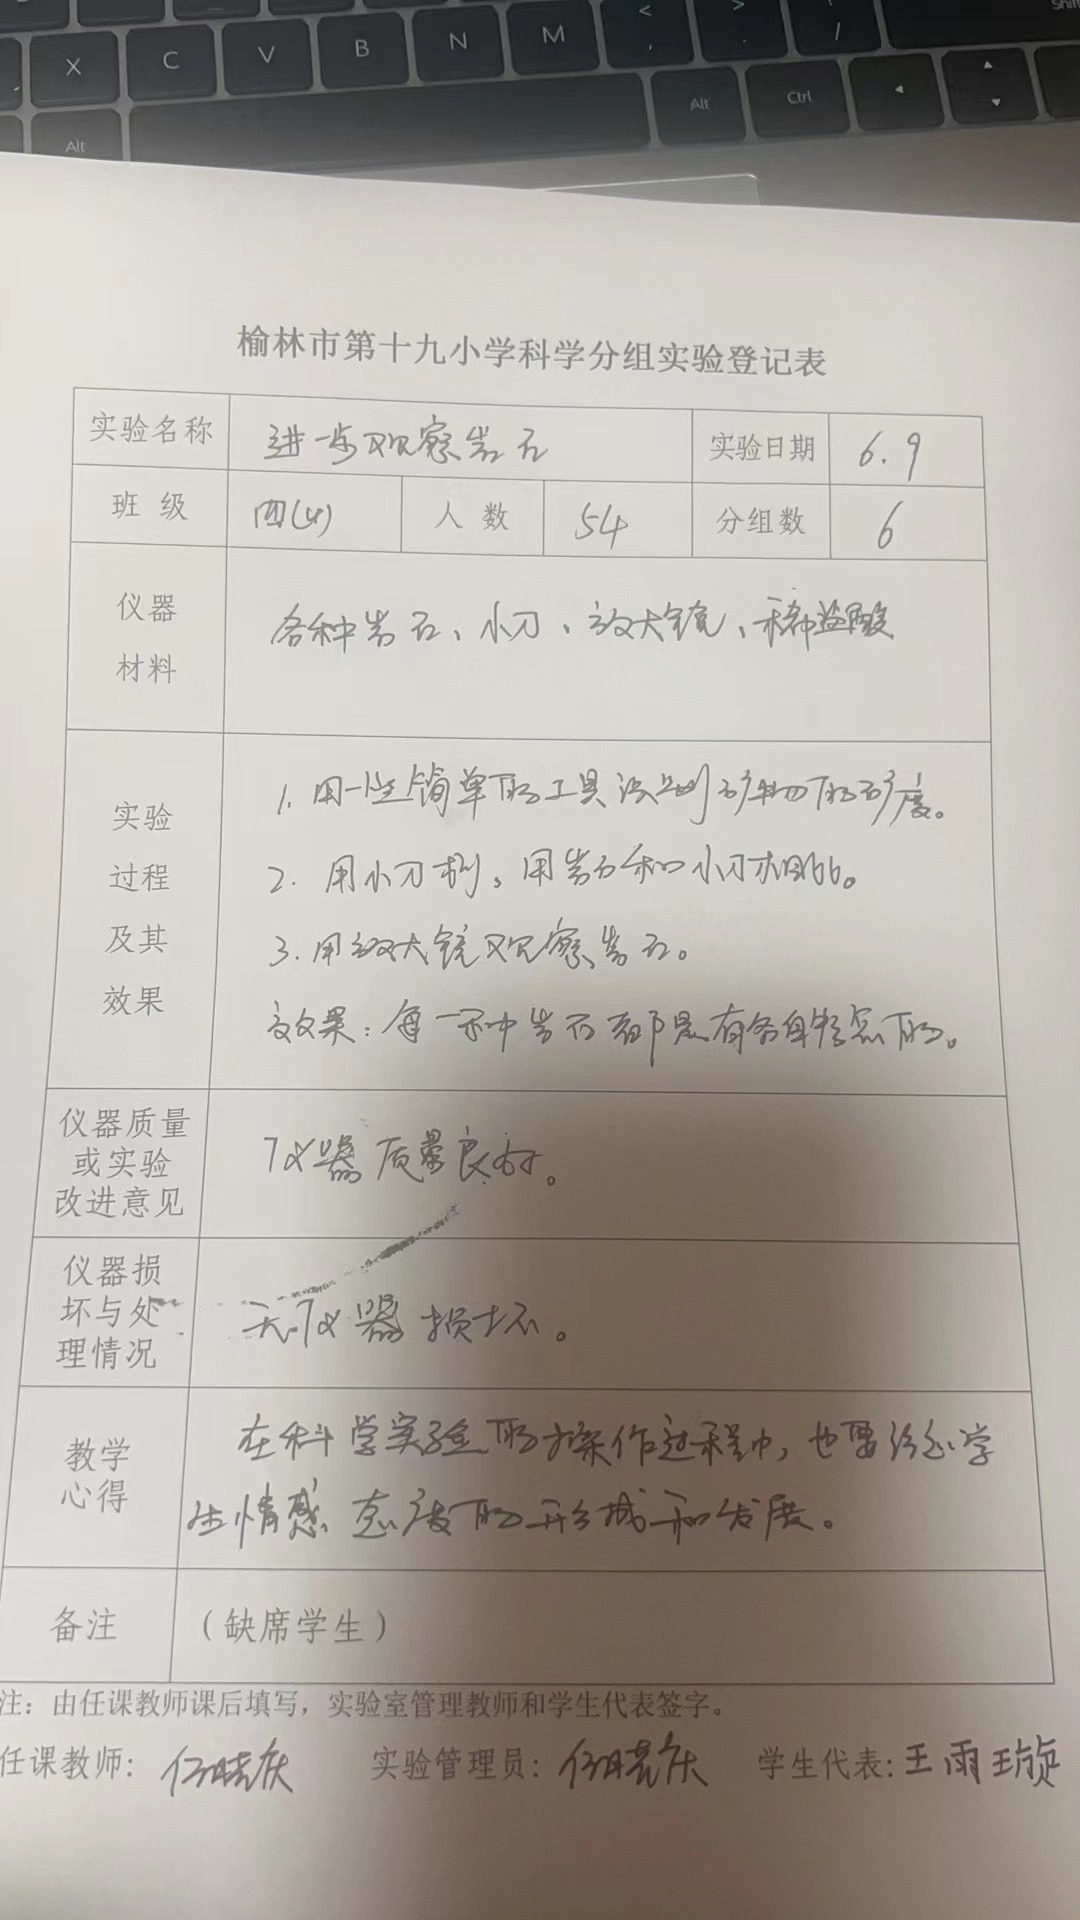 X C V B N M < , > . ? / Shift
Alt Alt Ctrl
榆林市第十九小学科学分组实验登记表
实验名称 进一步观察岩石 实验日期 6.9
班级 四(4) 人数 54 分组数 6
仪器
材料
各种岩石、小刀、放大镜、稀盐酸
实验
过程
及其
效果
1. 用一些简单的工具识别矿物的矿度。
2. 用小刀刻,用岩石和小刀相比。
3. 用放大镜观察岩石。
效果:每一种岩石都是有各自特点的。
仪器质量
或实验
改进意见
仪器质量良好。
仪器损
坏与处
理情况
无仪器损坏。
教学
心得
在科学实验的操作过程中,也要注意学
生情感态度的形成和发展。
备注 (缺席学生)
注:由任课教师课后填写,实验室管理教师和学生代表签字。
任课教师: 实验管理员: 学生代表:王雨璇